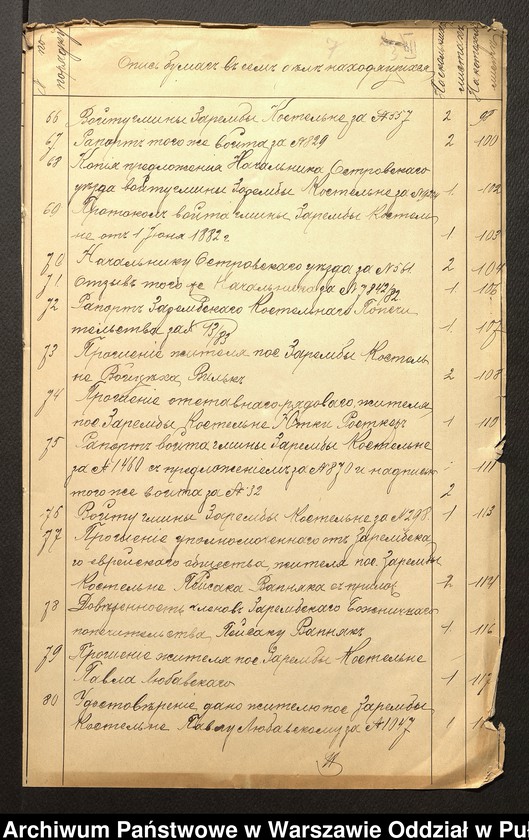 № по порядку
Опись бумагъ въ семъ дѣлѣ находящихся
На сколькихъ листахъ
На которомъ листѣ
66 Войту гмины Заремبы Костельне за №557 2 98
67 Рапортъ того же войта за №829 2 100
68 Копія предложенія Начальника Островскаго
уѣзда войту гмины Зарембы Костельне за № 1 102
69 Протоколъ войта гмины Зарембы Костель
не отъ 1 Іюня 1882 г. 1 103
70 Начальнику Островскаго уѣзда за №561 2 104
71 Отзывъ того же Начальника за №7842/82 1 106
72 Рапортъ Зарембскаго Костельнаго Попечи
тельства за № 13/83 1 107
73 Прошеніе жителя пос. Зарембы Костель
не 2 108
74 Прошеніе отставнаго рядоваго, жителя
пос. Зарембы Костельне 1 110
75 Рапортъ войта гмины Зарембы Костельне
за №1460 съ предложеніемъ за №870 и надписью 111
того же войта за №32 2
76 Войту гмины Зарембы Костельне за №298 1 113
77 Прошеніе уполномоченнаго отъ Зарембска
го еврейскаго общества, жителя пос. Зарембы
Костельне Пейсака Вапняка съ прилож 2 114
78 Довѣренность членовъ Зарембскаго Божничнаго
попечительства, Пейсаку Вапняку 1 116
79 Прошеніе жителя пос. Зарембы Костельне
Павла Любавскаго 1 117
80 Удостовѣреніе дано жителю пос. Зарембы
Костельне Павлу Любавскому за №1047 1
Archiwum Państwowe w Warszawie Oddział w Pu